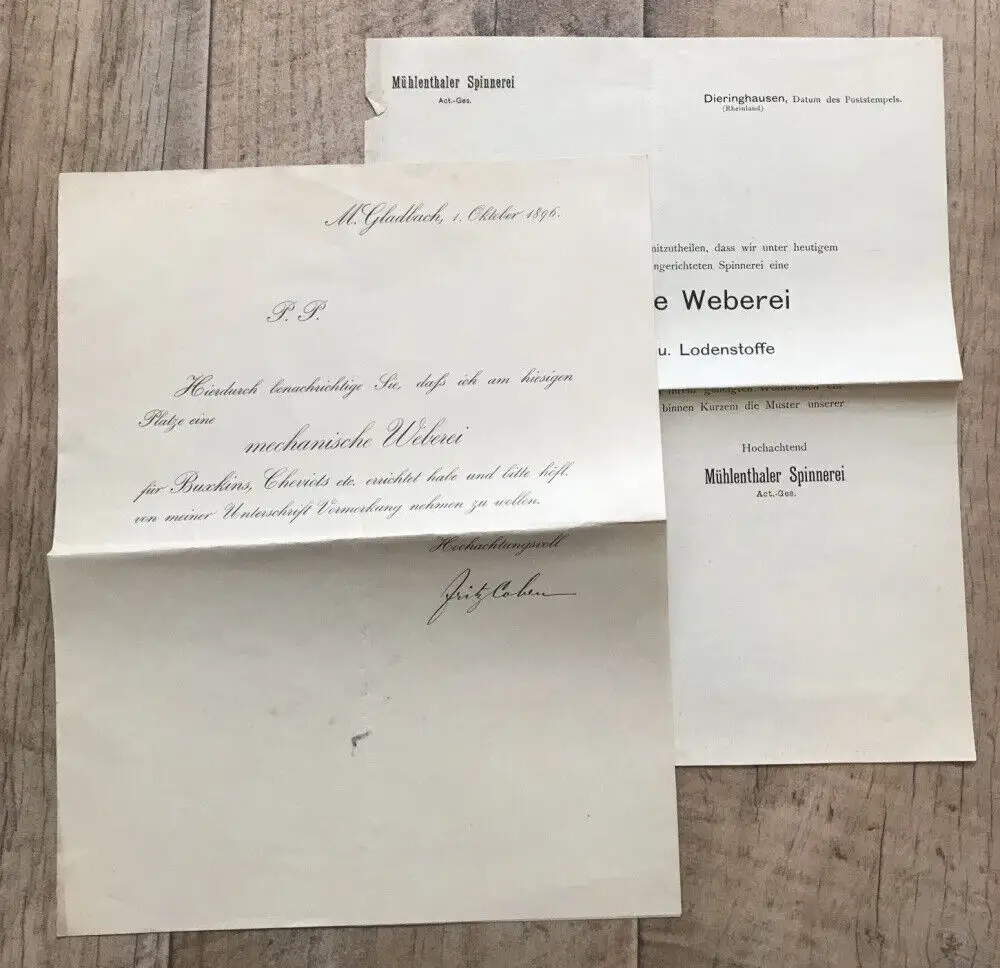 Mühlenthaler Spinnerei
Act.-Ges.
Dieringhausen, Datum des Poststempels.
(Rheinland)
mitzutheilen, dass wir unter heutigem
ngerichteten Spinnerei eine
e Weberei
u. Lodenstoffe
binnen Kurzem die Muster unserer
Hochachtend
Mühlenthaler Spinnerei
Act.-Ges.
M. Gladbach, 1. Oktober 1896.
P. P.
Hierdurch benachrichtige Sie, daſs ich am hiesigen
Platze eine
mechanische Weberei
für Buxkins, Cheviots etc. errichtet habe und bitte höfl.
von meiner Unterschrift Vormerkung nehmen zu wollen.
Hochachtungsvoll
Fritz Cohen